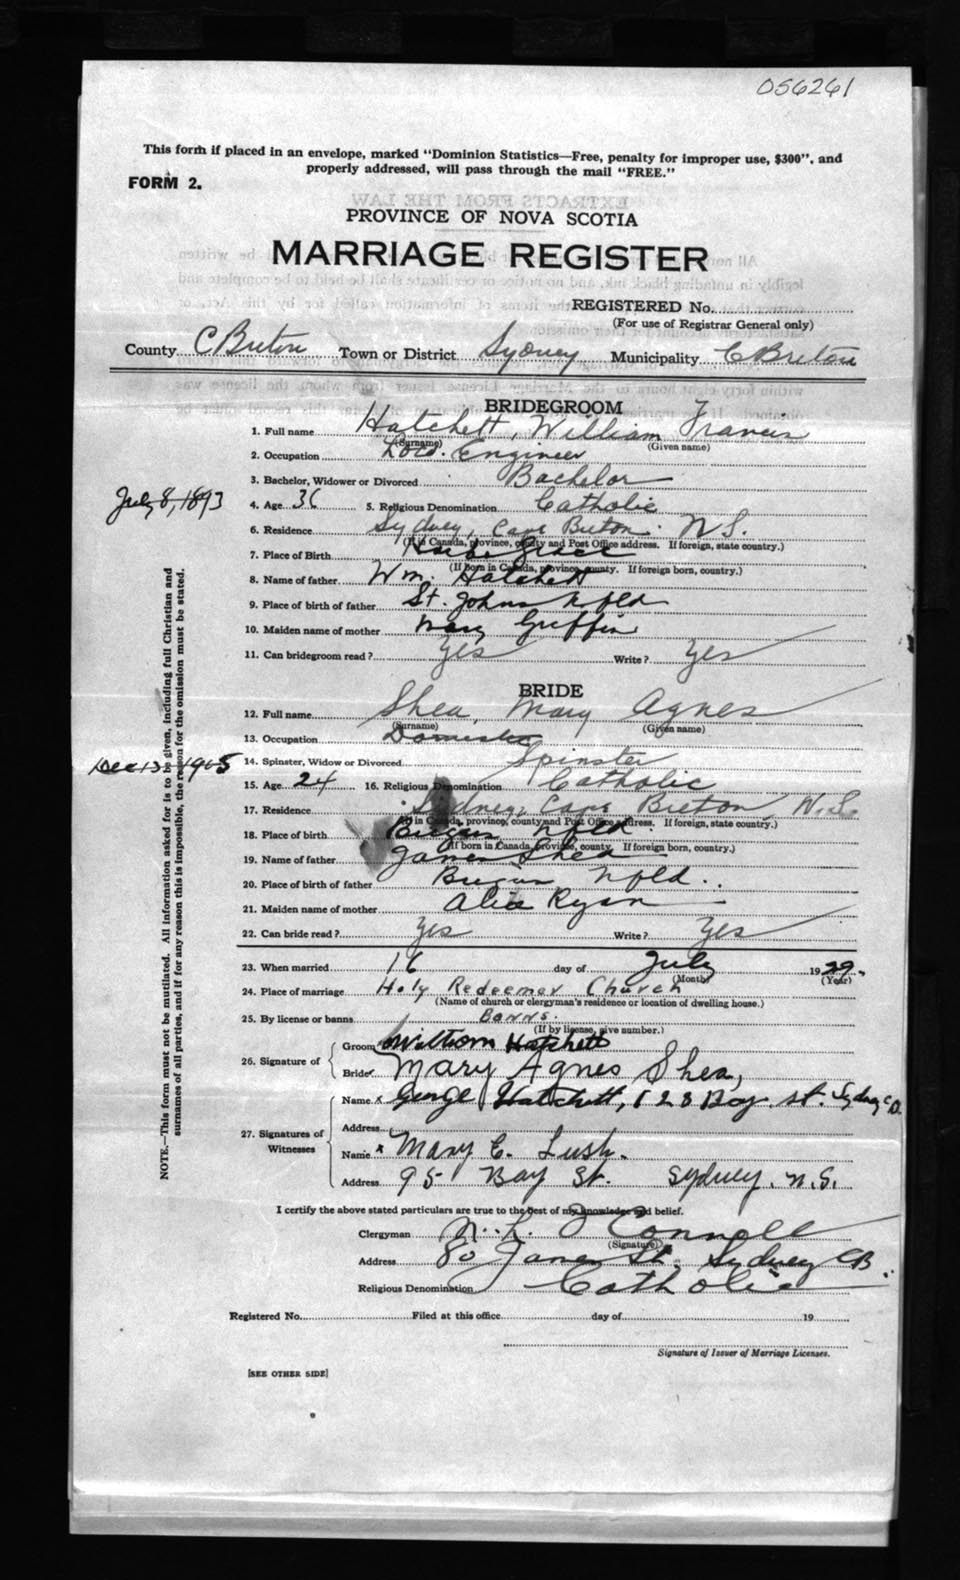 056261
This form if placed in an envelope, marked "Dominion Statistics—Free, penalty for improper use, $300", and
properly addressed, will pass through the mail "FREE."
FORM 2.
PROVINCE OF NOVA SCOTIA
MARRIAGE REGISTER
REGISTERED No.
(For use of Registrar General only)
County C Breton Town or District Sydney Municipality C Breton
BRIDEGROOM
1. Full name Hatchett, William Francis
(Surname) (Given name)
2. Occupation Loco. Engineer
3. Bachelor, Widower or Divorced Bachelor
July 8, 1893
4. Age 36 5. Religious Denomination Catholic
6. Residence Sydney, Cape Breton. N.S.
(If in Canada, province, county and Post Office address. If foreign, state country.)
7. Place of Birth Harbor Grace
(If born in Canada, province, county. If foreign born, country.)
8. Name of father Wm. Hatchett
9. Place of birth of father St. Johns Nfld
10. Maiden name of mother Mary Griffin
11. Can bridegroom read? Yes Write? Yes
BRIDE
12. Full name Shea, Mary Agnes
(Surname) (Given name)
13. Occupation Domestic
14. Spinster, Widow or Divorced Spinster
Dec 13, 1905
15. Age 24 16. Religious Denomination Catholic
17. Residence Sydney, Cape Breton, N.S.
(If in Canada, province, county and Post Office address. If foreign, state country.)
18. Place of birth Brigus Nfld.
(If born in Canada, province, county. If foreign born, country.)
19. Name of father James Shea
20. Place of birth of father Brigus Nfld.
21. Maiden name of mother Alice Ryan
22. Can bride read? Yes Write? Yes
23. When married 16 day of July 1929.
(Month) (Year)
24. Place of marriage Holy Redeemer Church
(Name of church or clergyman's residence or location of dwelling house.)
25. By license or banns Banns.
(If by license, give number.)
26. Signature of
Groom William Hatchett
Bride Mary Agnes Shea,
27. Signatures of Witnesses
Name x George Hatchett, 128 Bay. St. Sydney C.B.
Address
Name x Mary C. Lush.
Address 95 Bay St. Sydney. N.S.
I certify the above stated particulars are true to the best of my knowledge and belief.
Clergyman O'Connell
(Signature)
Address 80 James St. Sydney CB.
Religious Denomination Catholic
Registered No. Filed at this office day of 19
Signature of Issuer of Marriage Licenses.
[SEE OTHER SIDE]
NOTE.—This form must not be mutilated. All information asked for is to be given, including full Christian and
surnames of all parties, and if for any reason this is impossible, the reason for the omission must be stated.